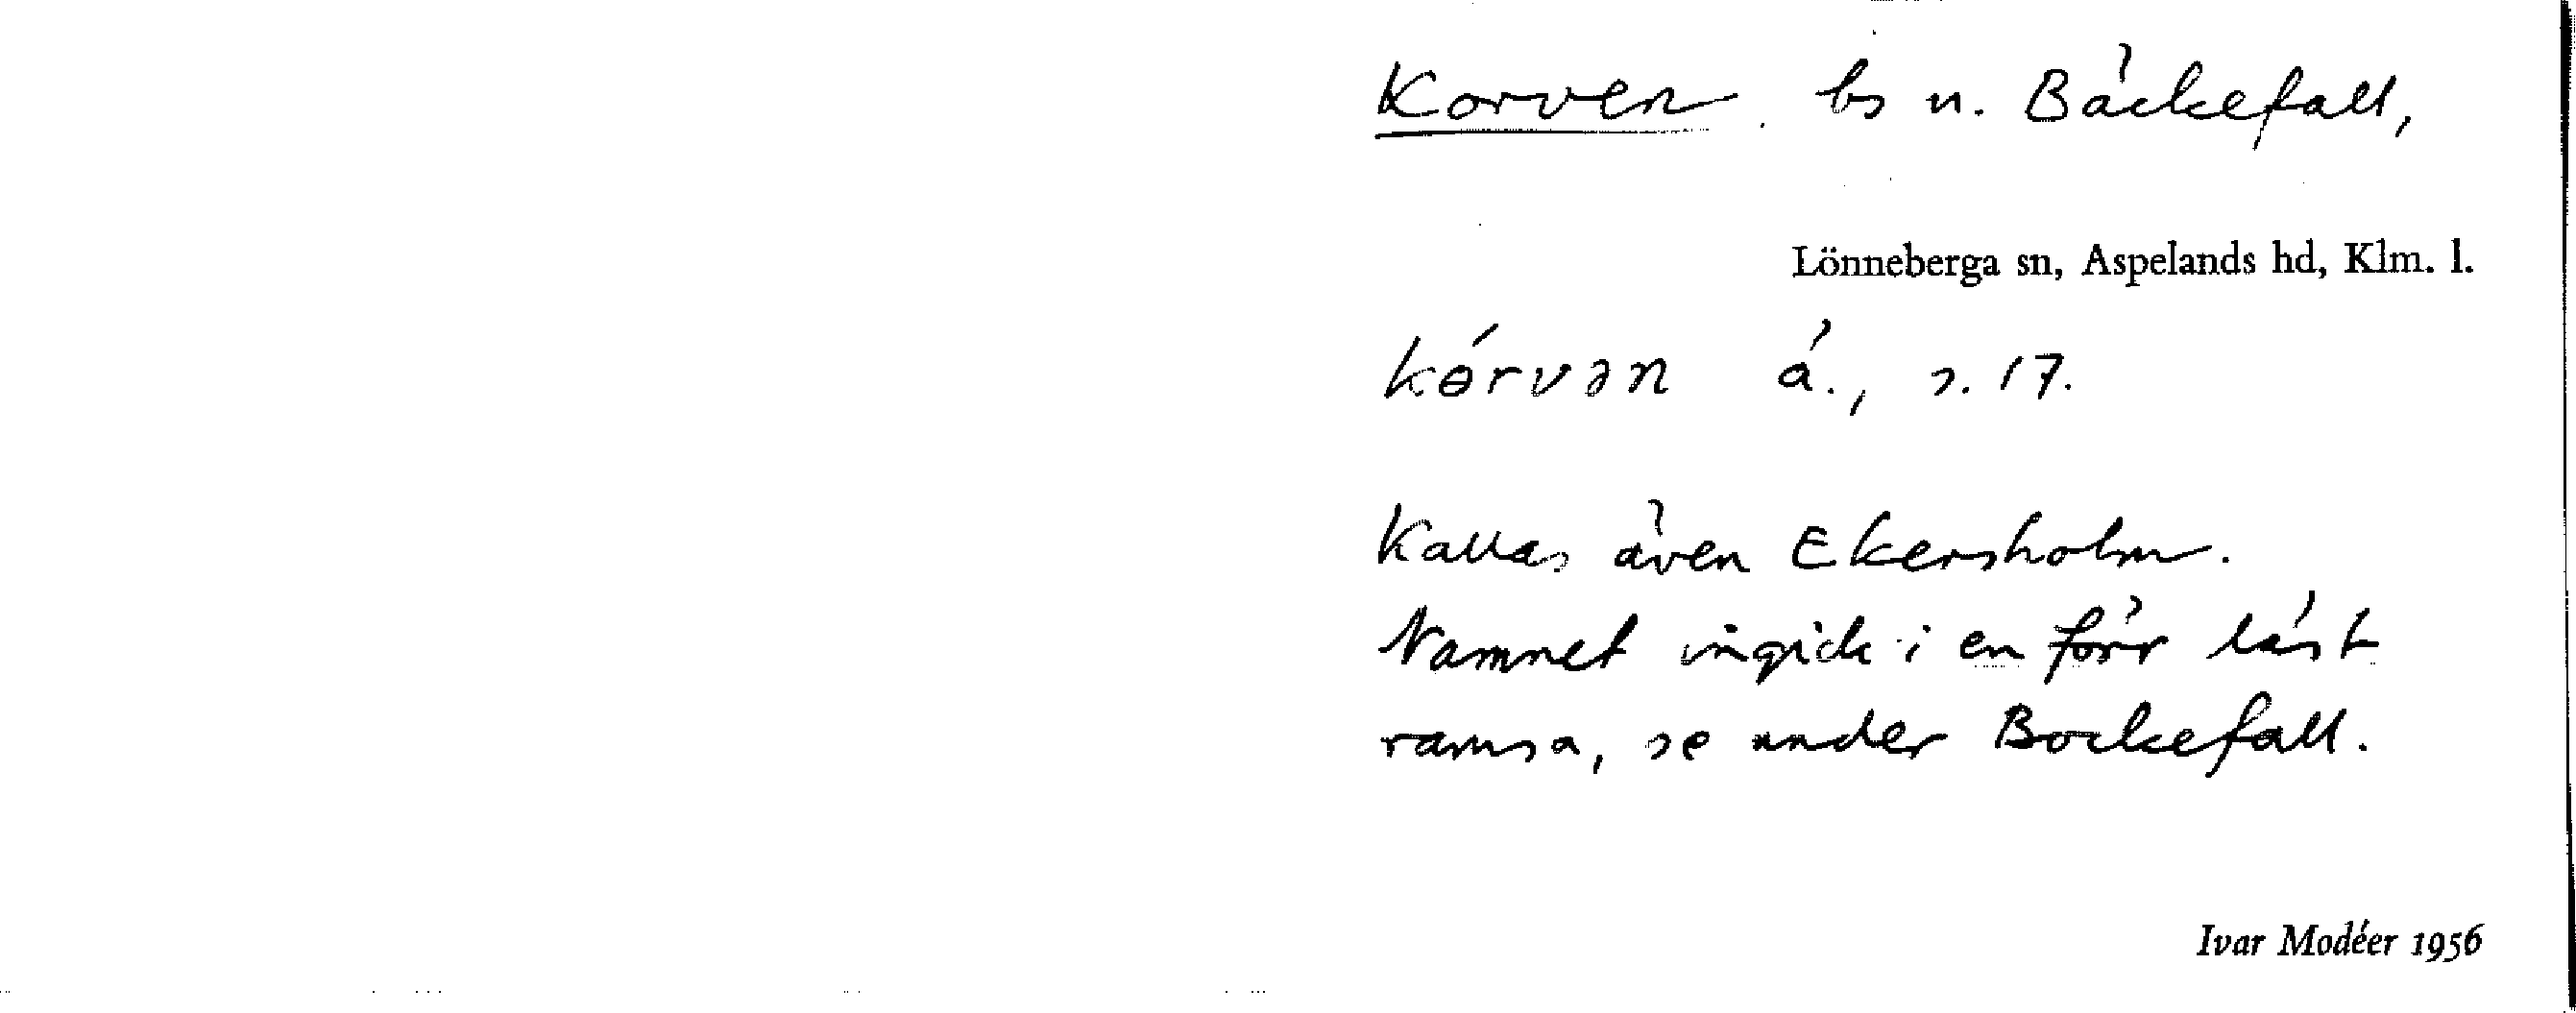 Korven. bs u. Bäckefall,
Lönneberga sn, Aspelands hd, Klm. l.
kɵ́rvən å., s. 17.
Kallas även Ekersholm.
Namnet ingick i en förr läst
ramsa, se under Bockefall.
Ivar Modéer 1956